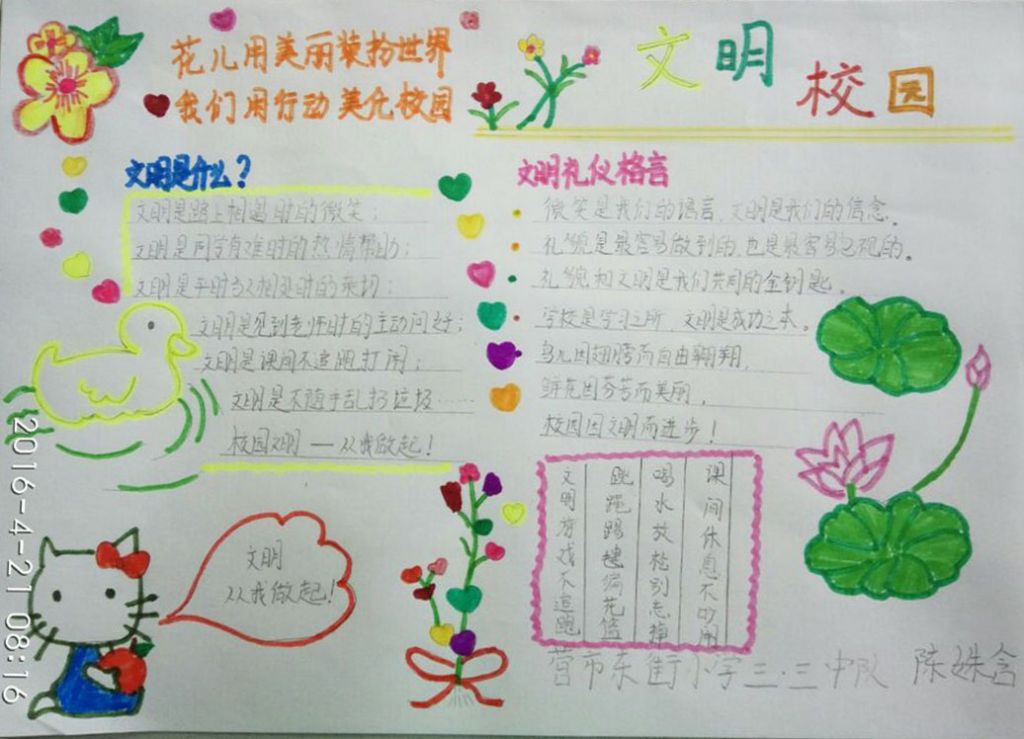 花儿用美丽装扮世界
我们用行动美化校园
文明校园
文明是什么？
文明是路上相遇时的微笑；
文明是同学有难时的热情帮助；
文明是平时与人相处时的亲切；
文明是见到老师时的主动问好；
文明是课间不追跑打闹；
文明是不随手乱扔垃圾……
校园文明——从我做起！
文明礼仪格言
微笑是我们的语言，文明是我们的信念。
礼貌是最容易做到的，也是最容易忽视的。
礼貌和文明是我们共同的金钥匙。
学校是学习之所，文明是成功之本。
鸟儿因翅膀而自由翱翔，
鲜花因芬芳而美丽，
校园因文明而进步！
课间休息不吵闹
喝水放松别忘掉
跳绳踢毽编花篮
文明游戏不追跑
文明
从我做起！
营市东街小学三·三中队 陈姝含
2016-4-21 08:16